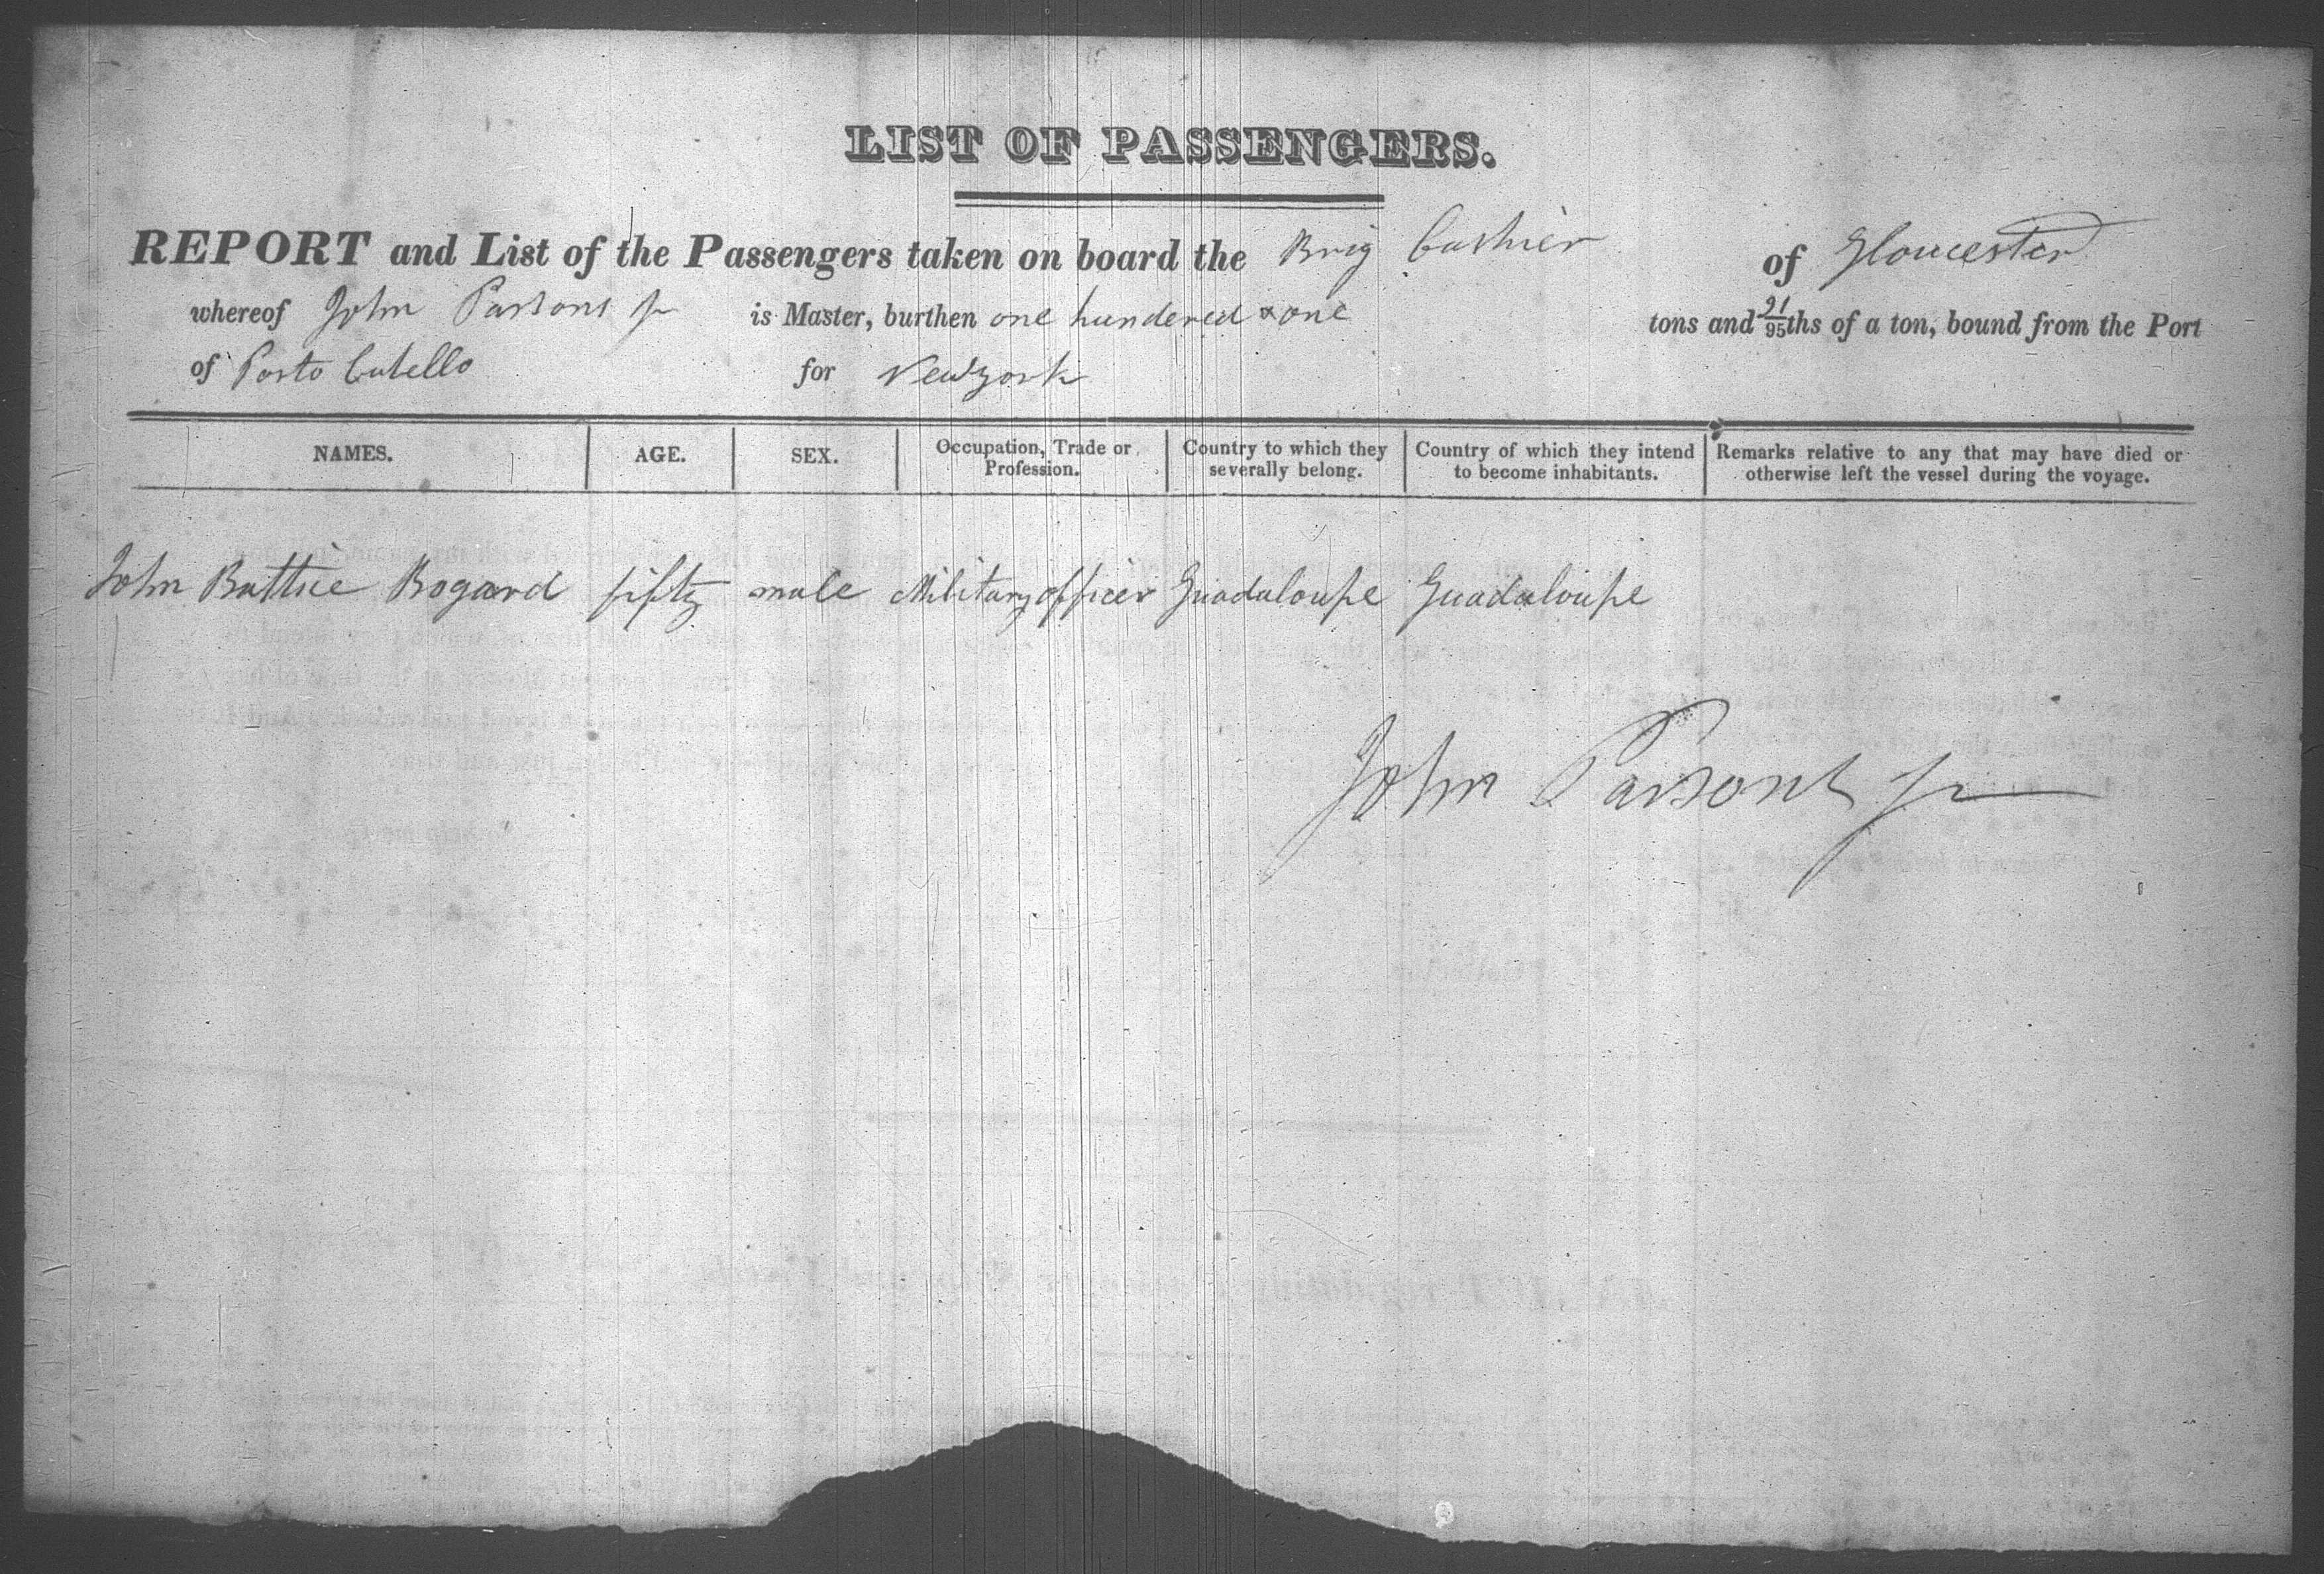 LIST OF PASSENGERS.
REPORT and List of the Passengers taken on board the Brig Cashier of Gloucester
whereof John Parsons Jr is Master, burthen one hundered & one tons and 91/95ths of a ton, bound from the Port
of Porto Cabello for Newyork
NAMES. AGE. SEX. Occupation, Trade or Profession. Country to which they severally belong. Country of which they intend to become inhabitants. Remarks relative to any that may have died or otherwise left the vessel during the voyage.
John Battice Bogard fifty male Military officer Guadaloupe Guadaloupe
John Parsons Jr